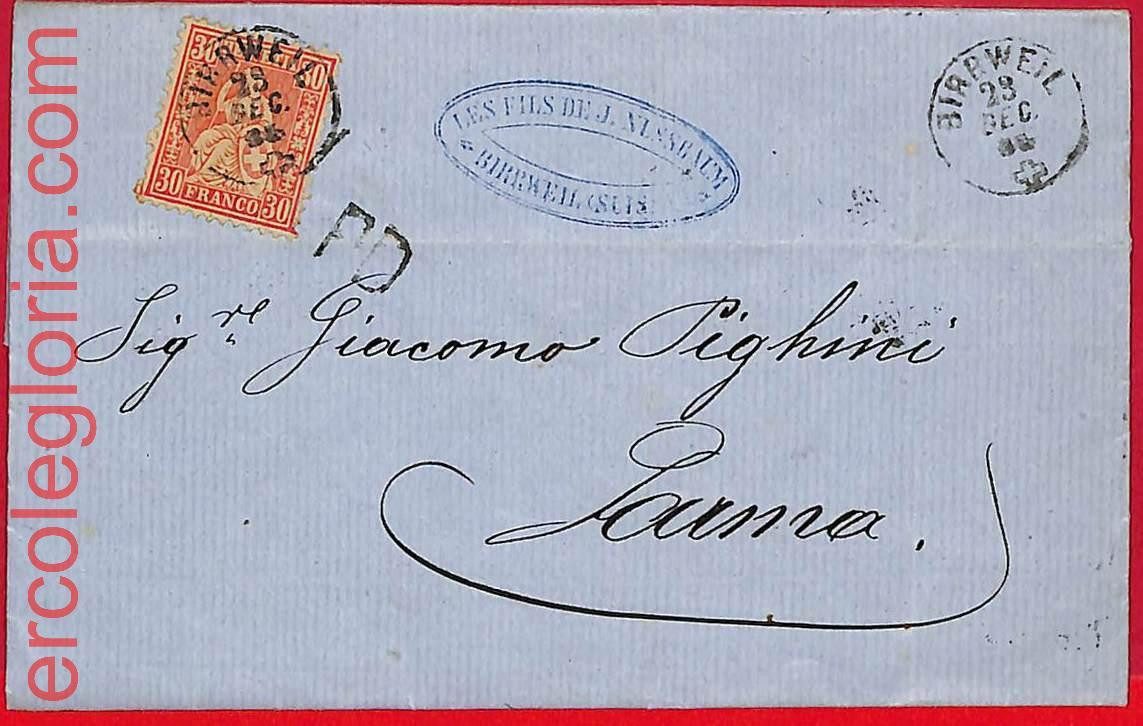 30 30
BIRRWEIL
23
DEC.
30 FRANCO 30
PD
LES FILS DE J. NUSSBAUM
BIRRWEIL (SUIS
BIRRWEIL
23
DEC.
Sigre Giacomo Pighini
Parma.
ercolegloria.com